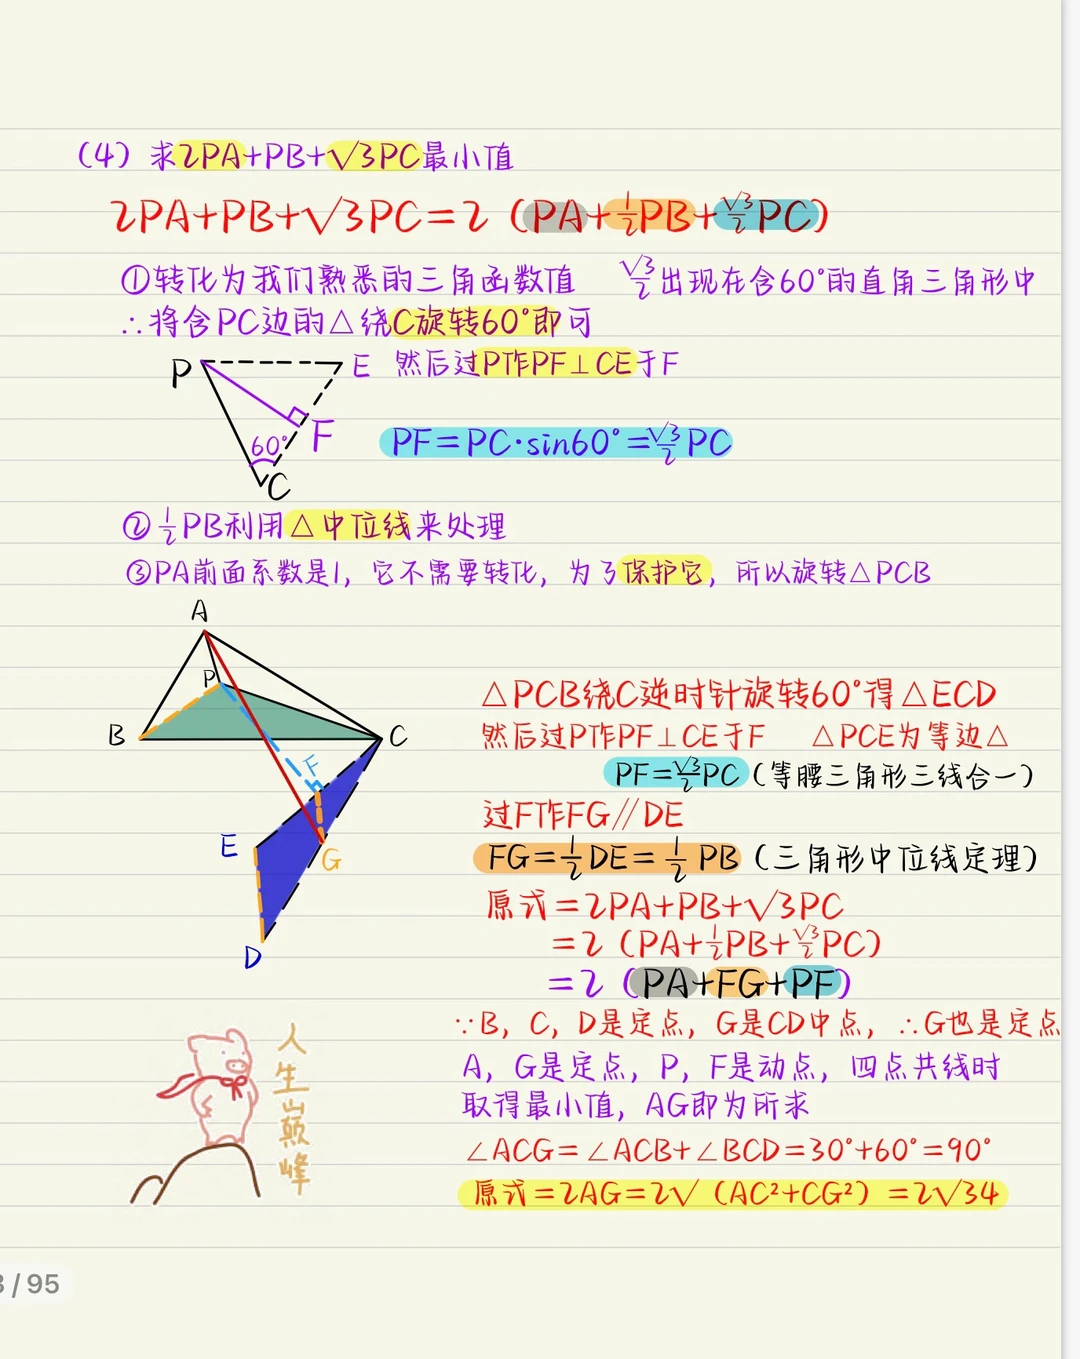 (4) 求2PA+PB+√3PC最小值
2PA+PB+√3PC=2 (PA+½PB+√3/2PC)
①转化为我们熟悉的三角函数值 √3/2出现在含60°的直角三角形中
∴将含PC边的△绕C旋转60°即可
P E 然后过P作PF⊥CE于F
60° F PF=PC·sin60°=√3/2PC
C
②½PB利用△中位线来处理
③PA前面系数是1，它不需要转化，为了保护它，所以旋转△PCB
A
P
B C
F
E
G
D
△PCB绕C逆时针旋转60°得△ECD
然后过P作PF⊥CE于F △PCE为等边△
PF=√3/2PC (等腰三角形三线合一)
过F作FG//DE
FG=½DE=½PB (三角形中位线定理)
原式=2PA+PB+√3PC
=2 (PA+½PB+√3/2PC)
=2 (PA+FG+PF)
∵B，C，D是定点，G是CD中点，∴G也是定点
A，G是定点，P，F是动点，四点共线时
取得最小值，AG即为所求
∠ACG=∠ACB+∠BCD=30°+60°=90°
原式=2AG=2√ (AC²+CG²) =2√34
人生巅峰
3/95